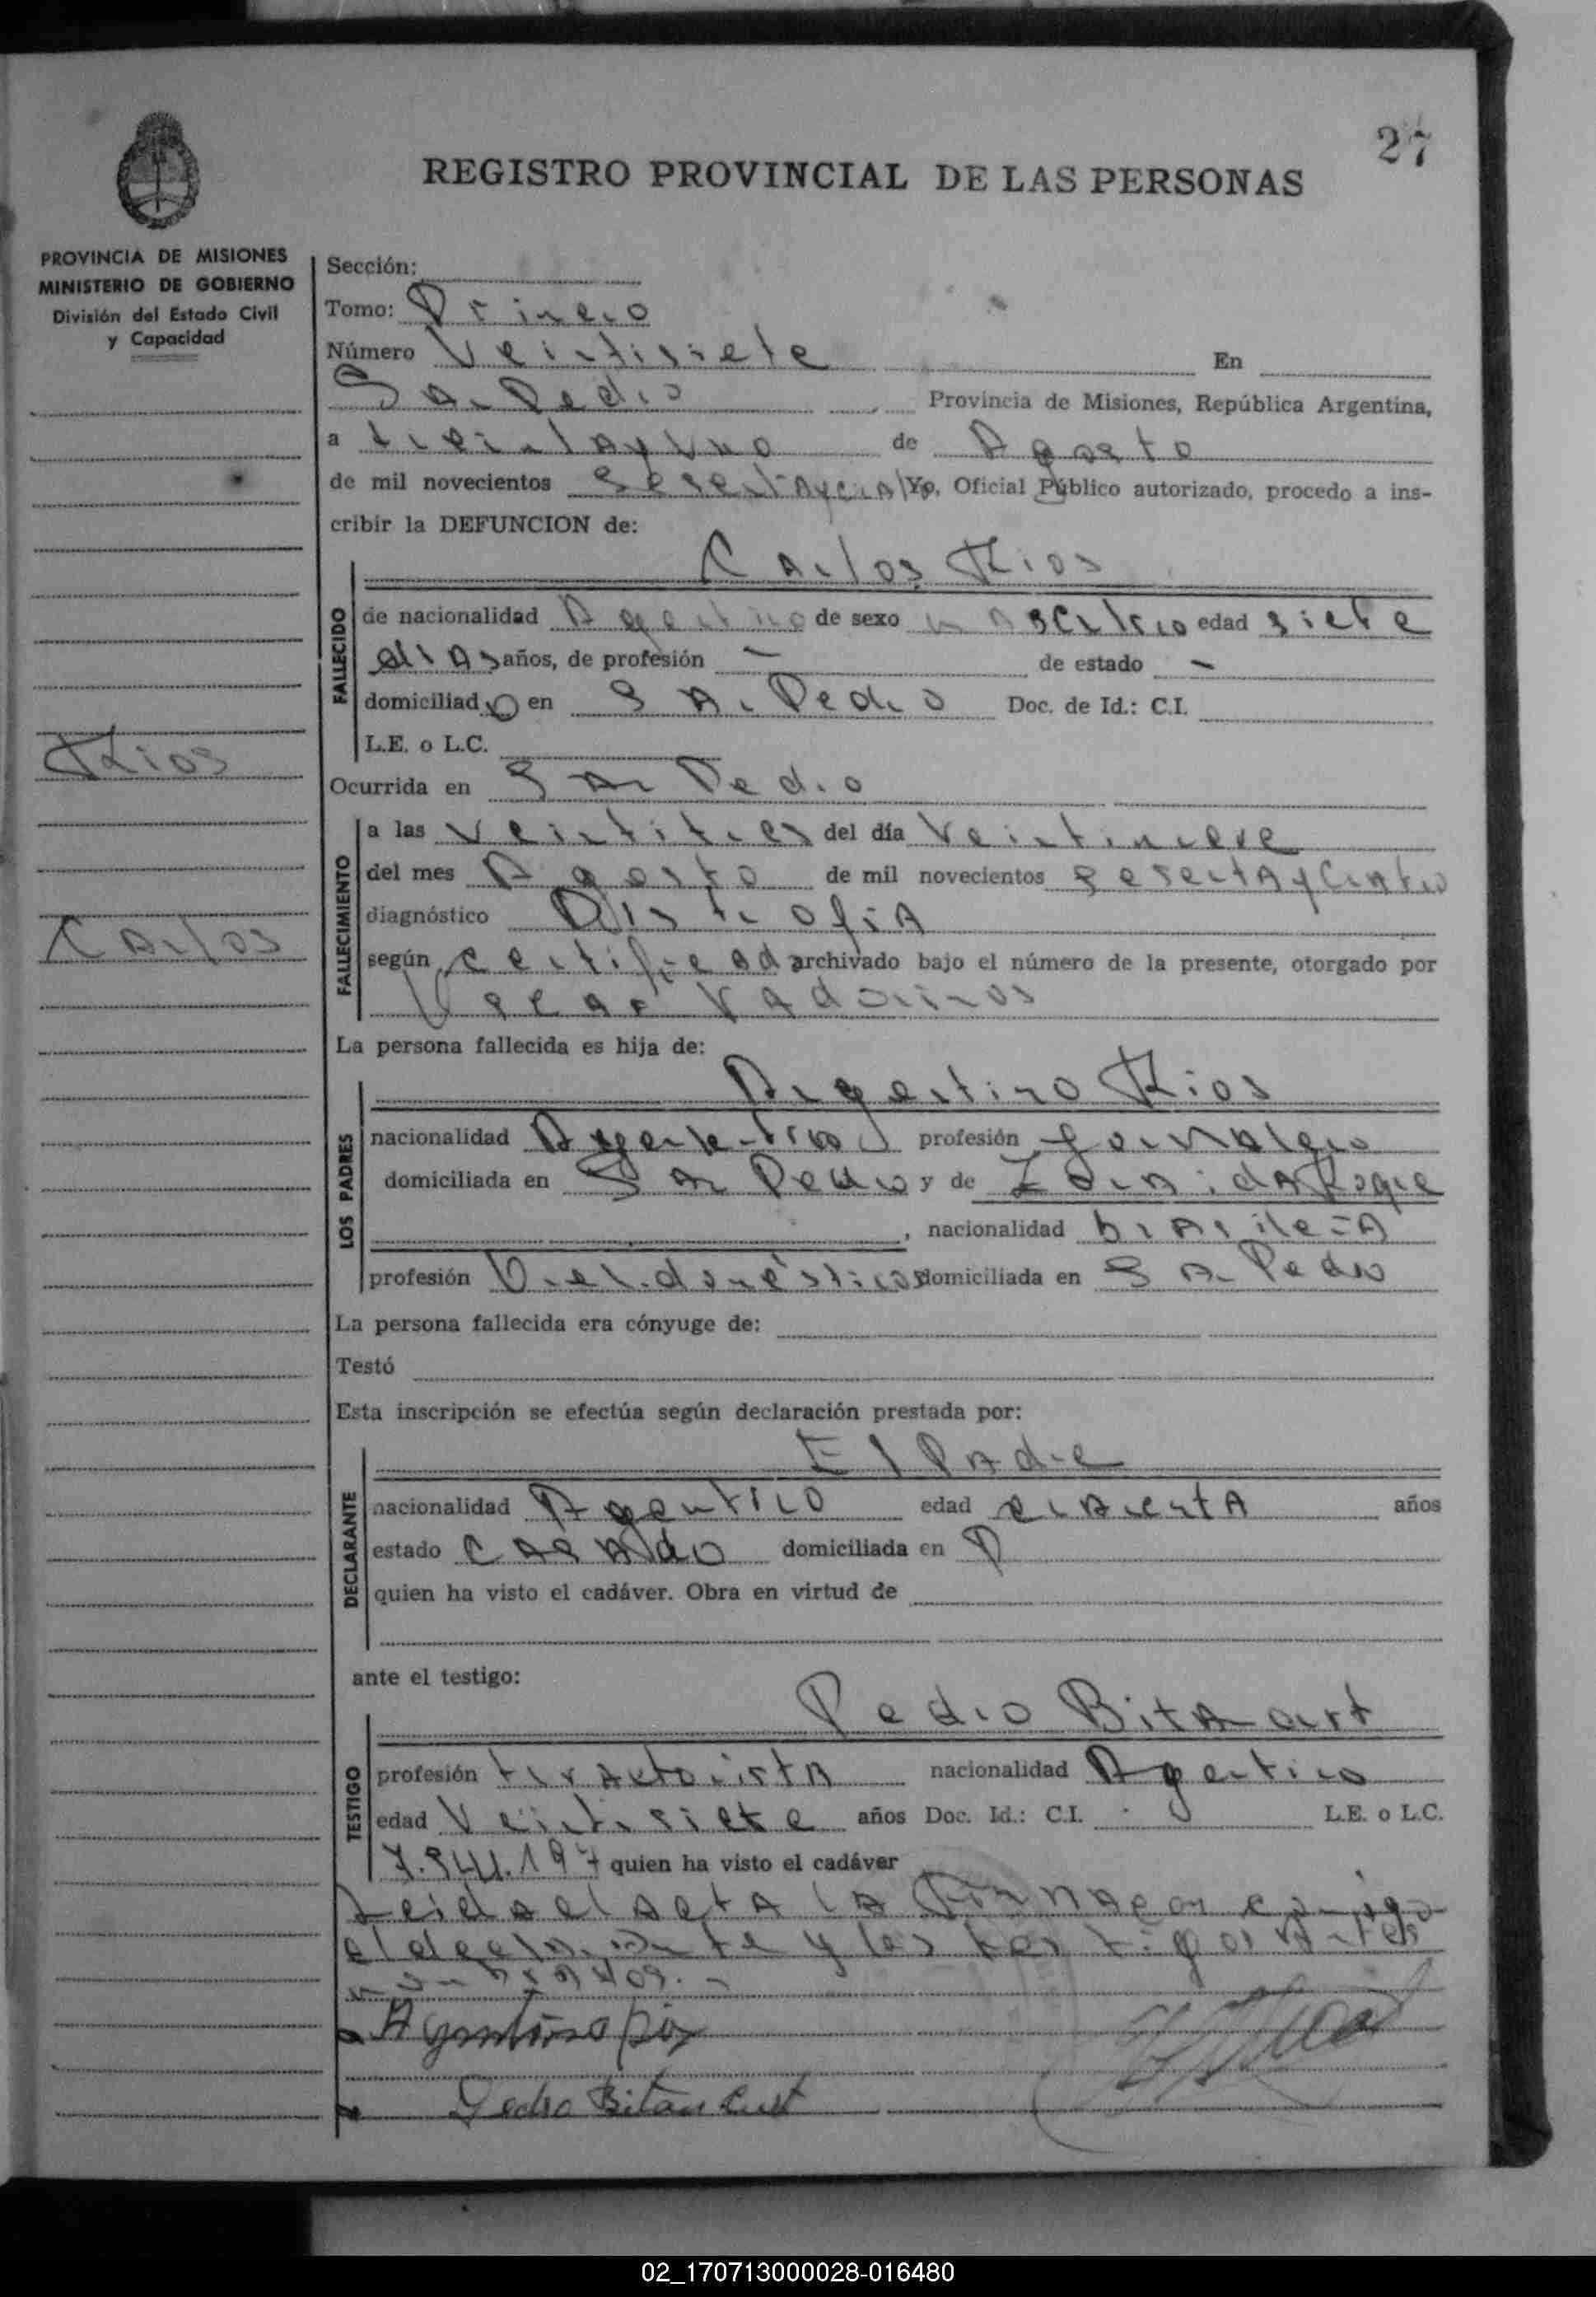 27
REGISTRO PROVINCIAL DE LAS PERSONAS
PROVINCIA DE MISIONES
MINISTERIO DE GOBIERNO
División del Estado Civil
y Capacidad
Sección:
Tomo: Primero
Número Veintisiete En
San Pedro Provincia de Misiones, República Argentina,
a treintayuno de Agosto
de mil novecientos Yo, Oficial Público autorizado, procedo a ins-
cribir la DEFUNCION de:
Carlos Rios
FALLECIDO
de nacionalidad Argentino de sexo masculino edad siete
dias años, de profesión — de estado —
domiciliado en San Pedro Doc. de Id.: C.I.
L.E. o L.C.
Rios
Carlos
Ocurrida en San Pedro
FALLECIMIENTO
a las veintitres del día veintinueve
del mes Agosto de mil novecientos sesentaycuatro
diagnóstico Distrofia
según certificad archivado bajo el número de la presente, otorgado por
La persona fallecida es hija de:
LOS PADRES
Argentino Rios
nacionalidad Argentino profesión
domiciliada en San Pedro y de Roque
, nacionalidad brasileña
profesión domiciliada en San Pedro
La persona fallecida era cónyuge de:
Testó
Esta inscripción se efectúa según declaración prestada por:
DECLARANTE
El Padre
nacionalidad Argentino edad años
estado casado domiciliada en
quien ha visto el cadáver. Obra en virtud de
ante el testigo:
TESTIGO
Pedro Bitancurt
profesión nacionalidad Argentino
edad Veintisiete años Doc. Id.: C.I. L.E. o L.C.
quien ha visto el cadáver
Leida el acta la firman conmigo
el declarante y los testigos antes
nombrados.-
Argentino Rios
Pedro Bitancurt
02_170713000028-016480